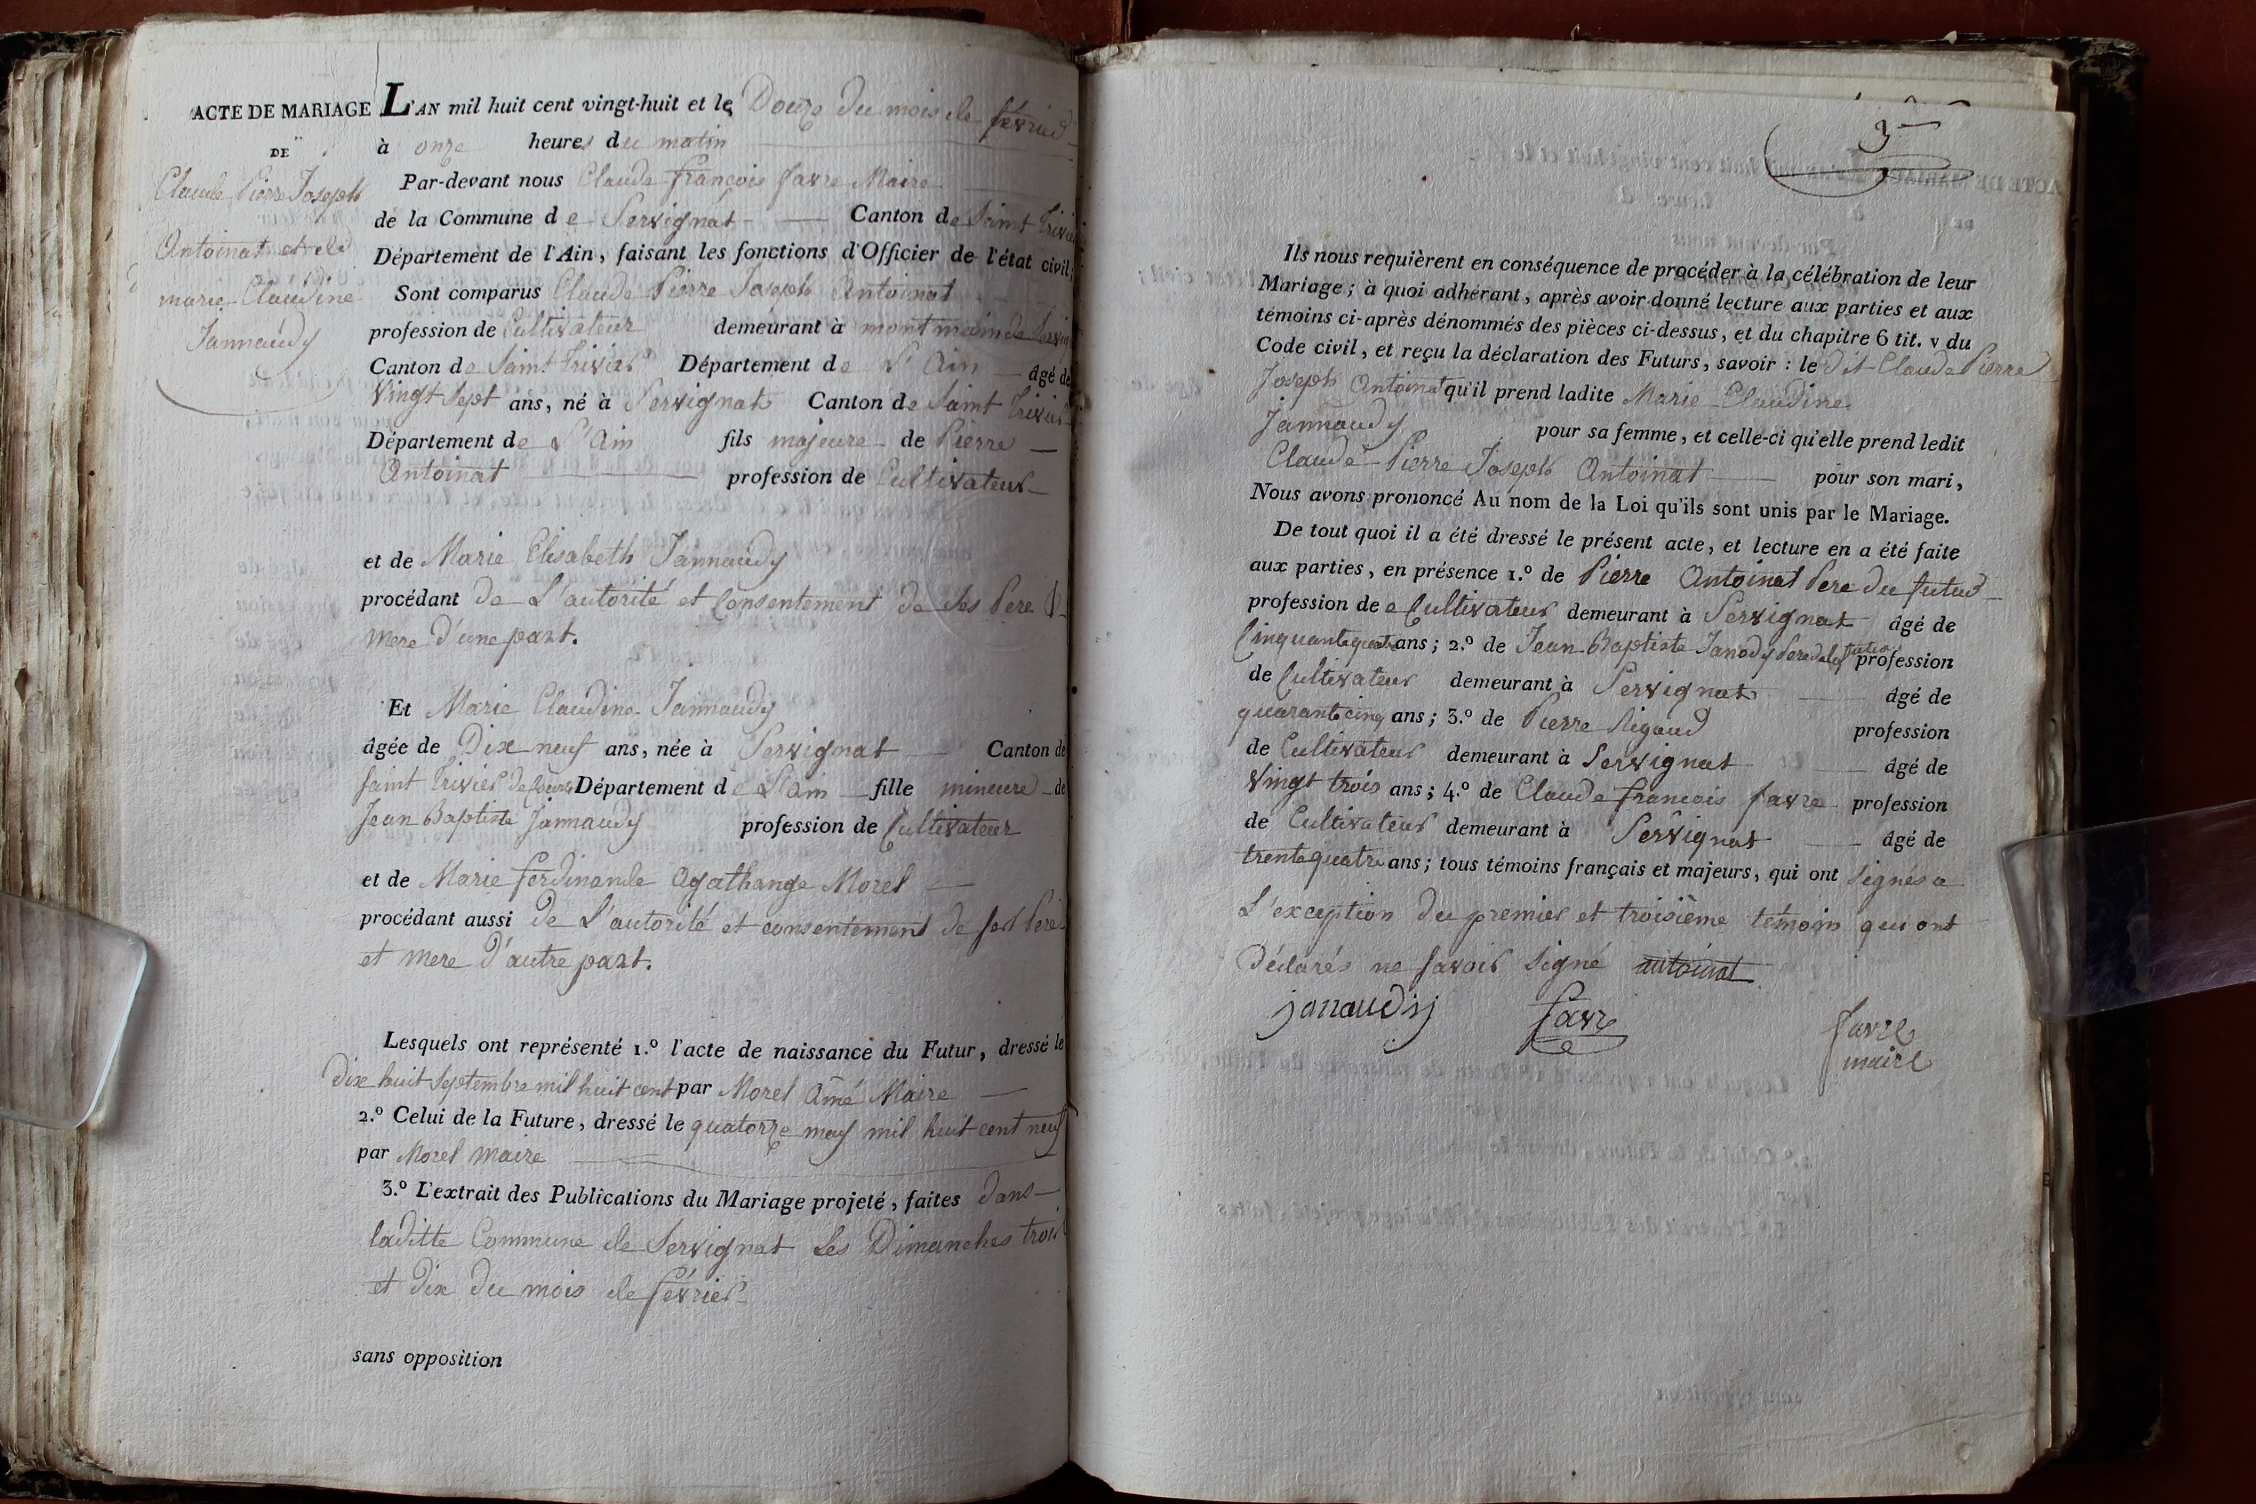 ACTE DE MARIAGE
DE
Claude Pierre Joseph
Antoinat et de
marie Claudine
Jannaudy
L'AN mil huit cent vingt-huit et le Douze du mois de février
à onze heures du matin
Par-devant nous Claude françois favre Maire
de la Commune de Servignat Canton de Saint Trivier
Département de l'Ain, faisant les fonctions d'Officier de l'état civil;
Sont comparus Claude Pierre Joseph Antoinat
profession de Cultivateur demeurant à montmain de
Canton de Saint Trivier Département de L'Ain âgé de
Vingt Sept ans, né à Servignat Canton de Saint Trivier
Département de L'Ain fils majeure de Pierre
Antoinat profession de Cultivateur
et de Marie Elisabeth Jannaudy
procédant de L'autorité et Consentement de ses Pere &
mere d'une part.
Et Marie Claudine Jannaudy
âgée de Dix neuf ans, née à Servignat Canton de
Saint Trivier de Courtes Département de L'ain fille mineure de
Jean Baptiste Jannaudy profession de Cultivateur
et de Marie ferdinande Agathange Morel
procédant aussi de L'autorité et consentement de ses Pere
et mere D'autre part.
Lesquels ont représenté 1.º l'acte de naissance du Futur, dressé le
Dix huit Septembre mil huit cent par Morel Amé Maire
2.º Celui de la Future, dressé le quatorze may mil huit cent neuf
par Morel maire
3.º L'extrait des Publications du Mariage projeté, faites dans
laditte Commune de Servignat Les Dimanches trois
et Dix du mois de février
sans opposition
3
Ils nous requièrent en conséquence de procéder à la célébration de leur
Mariage; à quoi adhérant, après avoir donné lecture aux parties et aux
témoins ci-après dénommés des pièces ci-dessus, et du chapitre 6 tit. v du
Code civil, et reçu la déclaration des Futurs, savoir : le dit Claude Pierre
Joseph Antoinat qu'il prend ladite Marie Claudine
Jannaudy pour sa femme, et celle-ci qu'elle prend ledit
Claude Pierre Joseph Antoinat pour son mari,
Nous avons prononcé Au nom de la Loi qu'ils sont unis par le Mariage.
De tout quoi il a été dressé le présent acte, et lecture en a été faite
aux parties, en présence 1.º de Pierre Antoinat Pere du futur
profession de Cultivateur demeurant à Servignat âgé de
Cinquante quatre ans; 2.º de Jean Baptiste Janody Pere de la future profession
de Cultivateur demeurant à Servignat âgé de
quarante cinq ans; 3.º de Pierre Rigaud profession
de Cultivateur demeurant à Servignat âgé de
Vingt trois ans; 4.º de Claude francois favre profession
de Cultivateur demeurant à Servignat âgé de
trente quatre ans; tous témoins français et majeurs, qui ont Signés a
L'exception du premier et troisième témoin qui ont
Déclarés ne savoir Signé antoinat
janaudy favre favre
maire